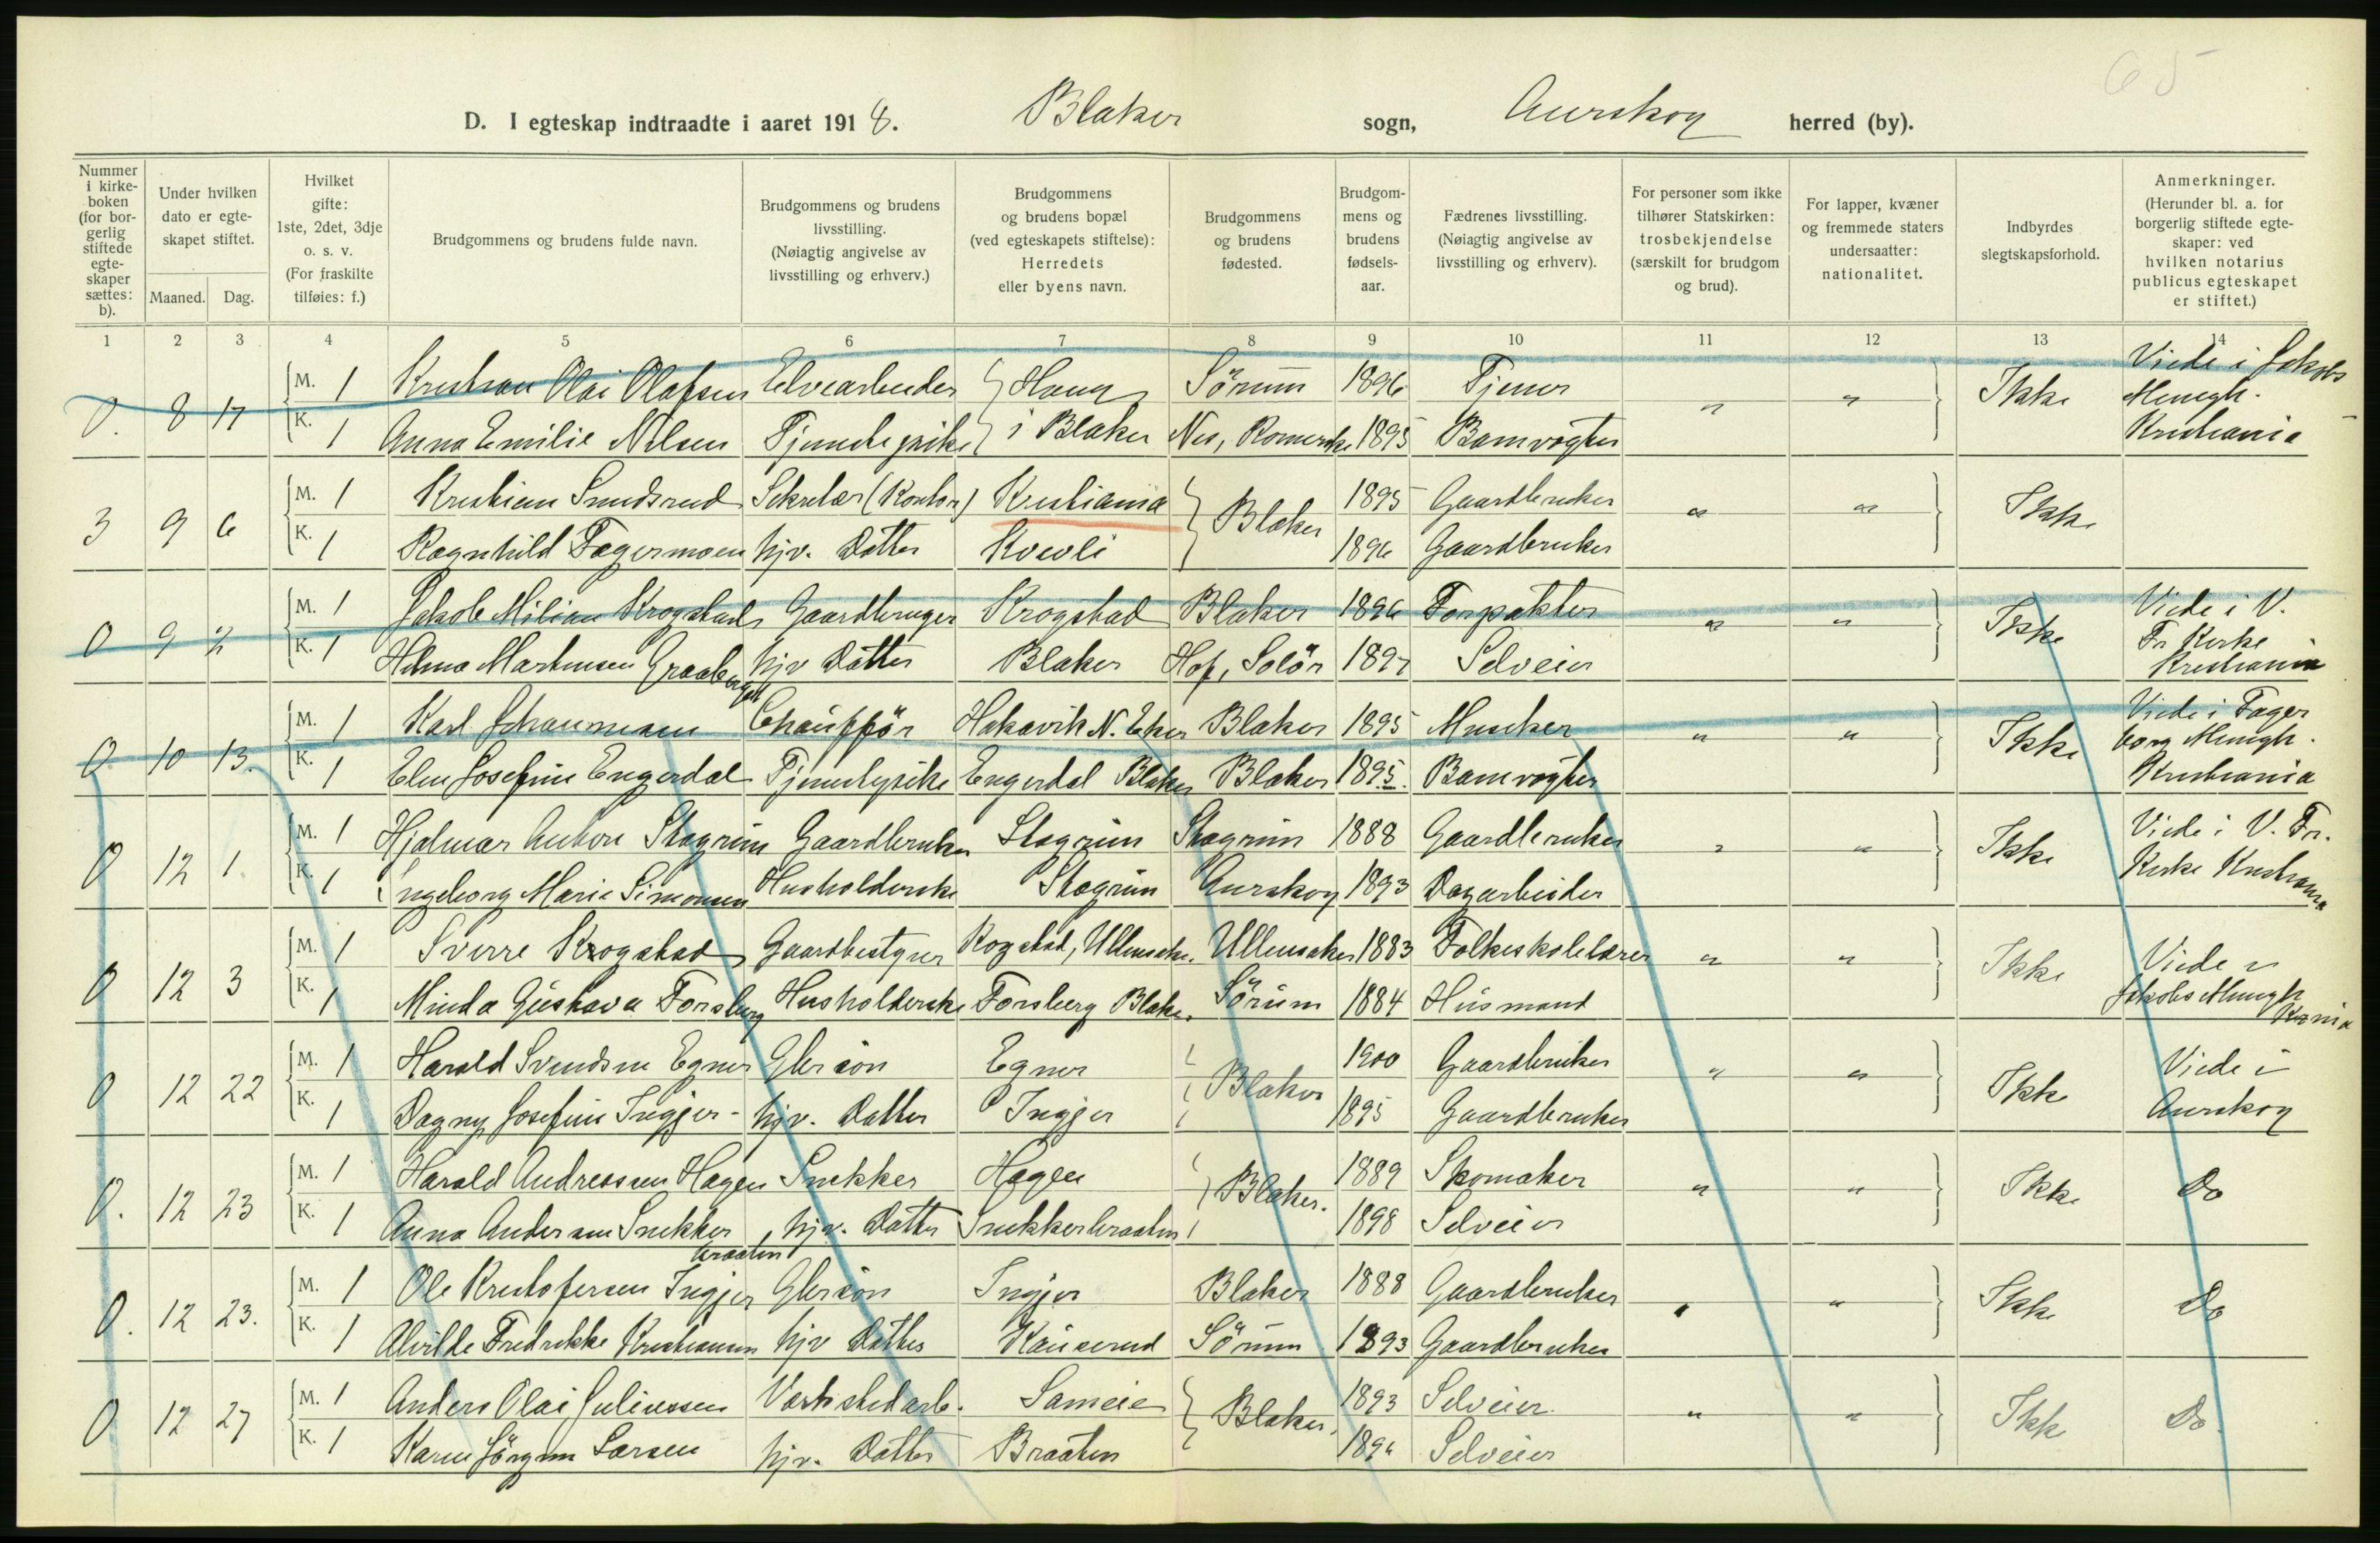 65
D. I egteskap indtraadte i aaret 1918. Blaker sogn, Aurskog herred (by).
Nummer i kirkeboken (for borgerlig stiftede egteskaper sættes: b).
Under hvilken dato er egteskapet stiftet.
Maaned. Dag.
Hvilket gifte: 1ste, 2det, 3dje o. s. v. (For fraskilte tilføies: f.)
Brudgommens og brudens fulde navn.
Brudgommens og brudens livsstilling. (Nøiagtig angivelse av livsstilling og erhverv.)
Brudgommens og brudens bopæl (ved egteskapets stiftelse): Herredets eller byens navn.
Brudgommens og brudens fødested.
Brudgommens og brudens fødselsaar.
Fædrenes livsstilling. (Nøiagtig angivelse av livsstilling og erhverv).
For personer som ikke tilhører Statskirken: trosbekjendelse (særskilt for brudgom og brud).
For lapper, kvæner og fremmede staters undersaatter: nationalitet.
Indbyrdes slegtskapsforhold.
Anmerkninger. (Herunder bl. a. for borgerlig stiftede egteskaper: ved hvilken notarius publicus egteskapet er stiftet.)
1 2 3 4 5 6 7 8 9 10 11 12 13 14
0. 8 17 M. 1 Kristian Olai Olafsen Elvearbeider Haug Sörum 1896 Tjener " " Ikke Viede i Jakobs Menigh. Kristiania
K. 1 Anna Emilie Nilsen Tjenestepike i Blaker Nes, Romerike 1895 Banevogter
3 9 6 M. 1 Kristian Smedsrud Sekretær (Kontor) Kristiania Blaker 1895 Gaardbruker " " Ikke
K. 1 Ragnhild Fagermoen hjv. Datter Kvevli 1896 Gaardbruker
0 9 M. 1 Jakob Milian Krogstad Gaardbruger Krogstad Blaker 1896 Forpakter " " Ikke Viede i V. Fr Kirke Kristiania
K. 1 Helma Martinsen Graaberget hjv Datter Blaker Hof, Solör 1897 Selveier
0. 10 13. M. 1 Karl Schaumann Chauffør Hakavik N. Eker Blaker 1895 Musiker " " Ikke Viede i Fagerborg Menigh. Kristiania
K. 1 Elen Josefine Engerdal Tjenestepike Engerdal Blaker Blaker 1895. Banevogter
0 12 1. M. 1 Hjalmar Anton Skogrim Gaardbruker Skogrim Skogrim 1888 Gaardbruker " " Ikke Viede i V. Fr. Kirke Kristiania
K. 1 Ingeborg Marie Simonsen Husholderske Skogrim Aurskog 1893 Dagarbeider
0 12 3 M. 1 Sverre Krogstad Gaardbestyrer Kogstad, Ullensaker Ullensaker 1883 Folkeskolelærer " " Ikke Viede i Jakobs Menigh Krania
K. 1 Minda Gustava Forsberg Husholderske Forsberg Blaker Sörum 1884 Husmand
0 12 22 M. 1 Harald Svendsen Egner Gbr. sön Egner Blaker 1900 Gaardbruker " " Ikke Viede i Aurskog
K. 1 Dagny Josefine Ingjer hjv. Datter Ingjer 1895 Gaardbruker
0. 12 23 M. 1 Harald Andreassen Hagen Snekker Hagen Blaker. 1889 Skomaker " " Ikke Do
K. 1 Anna Andersen Snekkerbraaten hjv. Datter Snekkerbraaten 1898 Selveier
0. 12 23. M. 1 Ole Kristofersen Ingjer Gbr. sön Ingjer Blaker 1888 Gaardbruker " " Ikke Do
K. 1 Alvilde Fredrikke Kristiansen hjv Datter Kauserud Sörum 1893 Gaardbruker
0. 12 27 M. 1 Anders Olai Juliussen Verkstedarb. Sameie Blaker. 1893 Selveier " " Ikke Do
K. 1 Karen Jörgine Larsen hjv. Datter Braaten 1896 Selveier